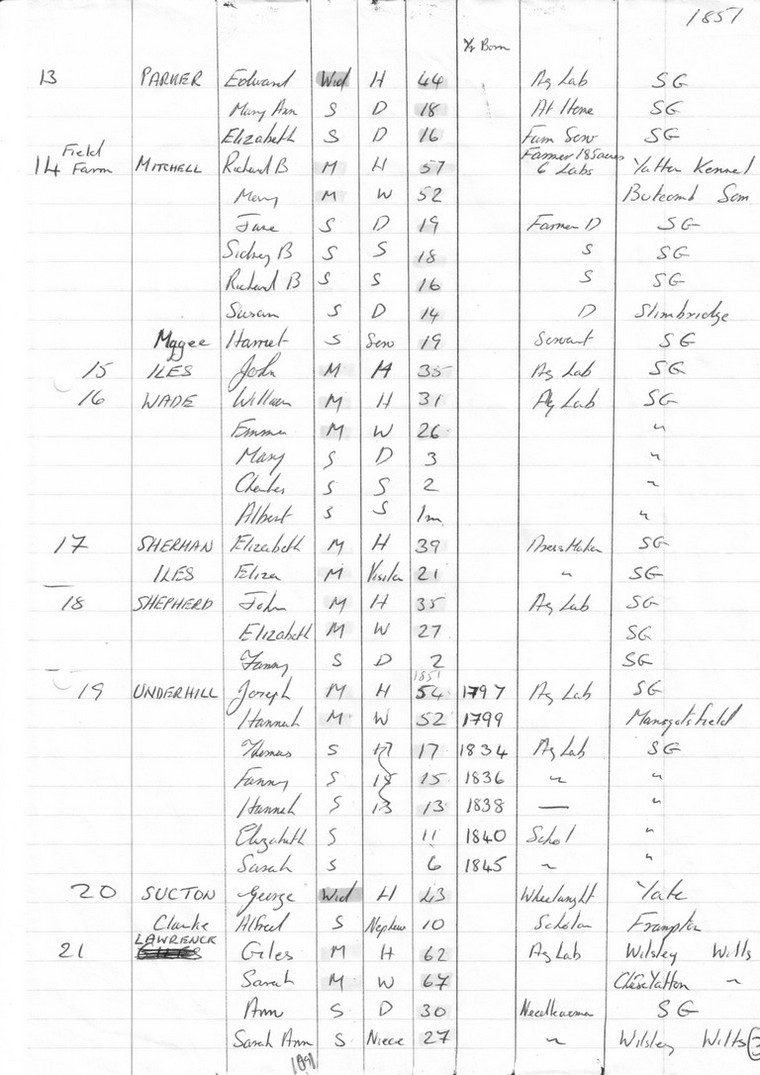 1851
Yr Born
13 PARKER Edward Wid H 44 Ag Lab SG
Mary Ann S D 18 At Home SG
Elizabeth S D 16 Farm Serv SG
14 Field Farm MITCHELL Richard B M H 57 Farmer 185 acres 6 Labs Yatton Kennel
Mary M W 52 Butcomb Som
Jane S D 19 Farmer D SG
Sidney B S S 18 S SG
Richard B S S 16 S SG
Susan S D 14 D Slimbridge
Magee Harriet S Serv 19 Servant SG
15 ILES John M H 35 Ag Lab SG
16 WADE William M H 31 Ag Lab SG
Emma M W 26 "
Mary S D 3 "
Charles S S 2 "
Albert S S 1m "
17 SHERMAN Elizabeth M H 39 Dress Maker SG
ILES Eliza M Visitor 21 " SG
18 SHEPHERD John M H 35 Ag Lab SG
Elizabeth M W 27 SG
Fanny S D 2 SG
1851
19 UNDERHILL Joseph M H 54 1797 Ag Lab SG
Hannah M W 52 1799 Mangotsfield
Thomas S 17 17 1834 Ag Lab SG
Fanny S 15 15 1836 " "
Hannah S 13 13 1838 — "
Elizabeth S 11 1840 Schol "
Sarah S 6 1845 " "
20 SUCTON George Wid H 43 Wheelwright Yate
Clarke Alfred S Nephew 10 Scholar Frampton
21 LAWRENCE Giles M H 62 Ag Lab Wilsley Wilts
Sarah M W 67 Yatton "
Ann S D 30 Needlewoman SG
Sarah Ann S Niece 27 " Wilsley Wilts